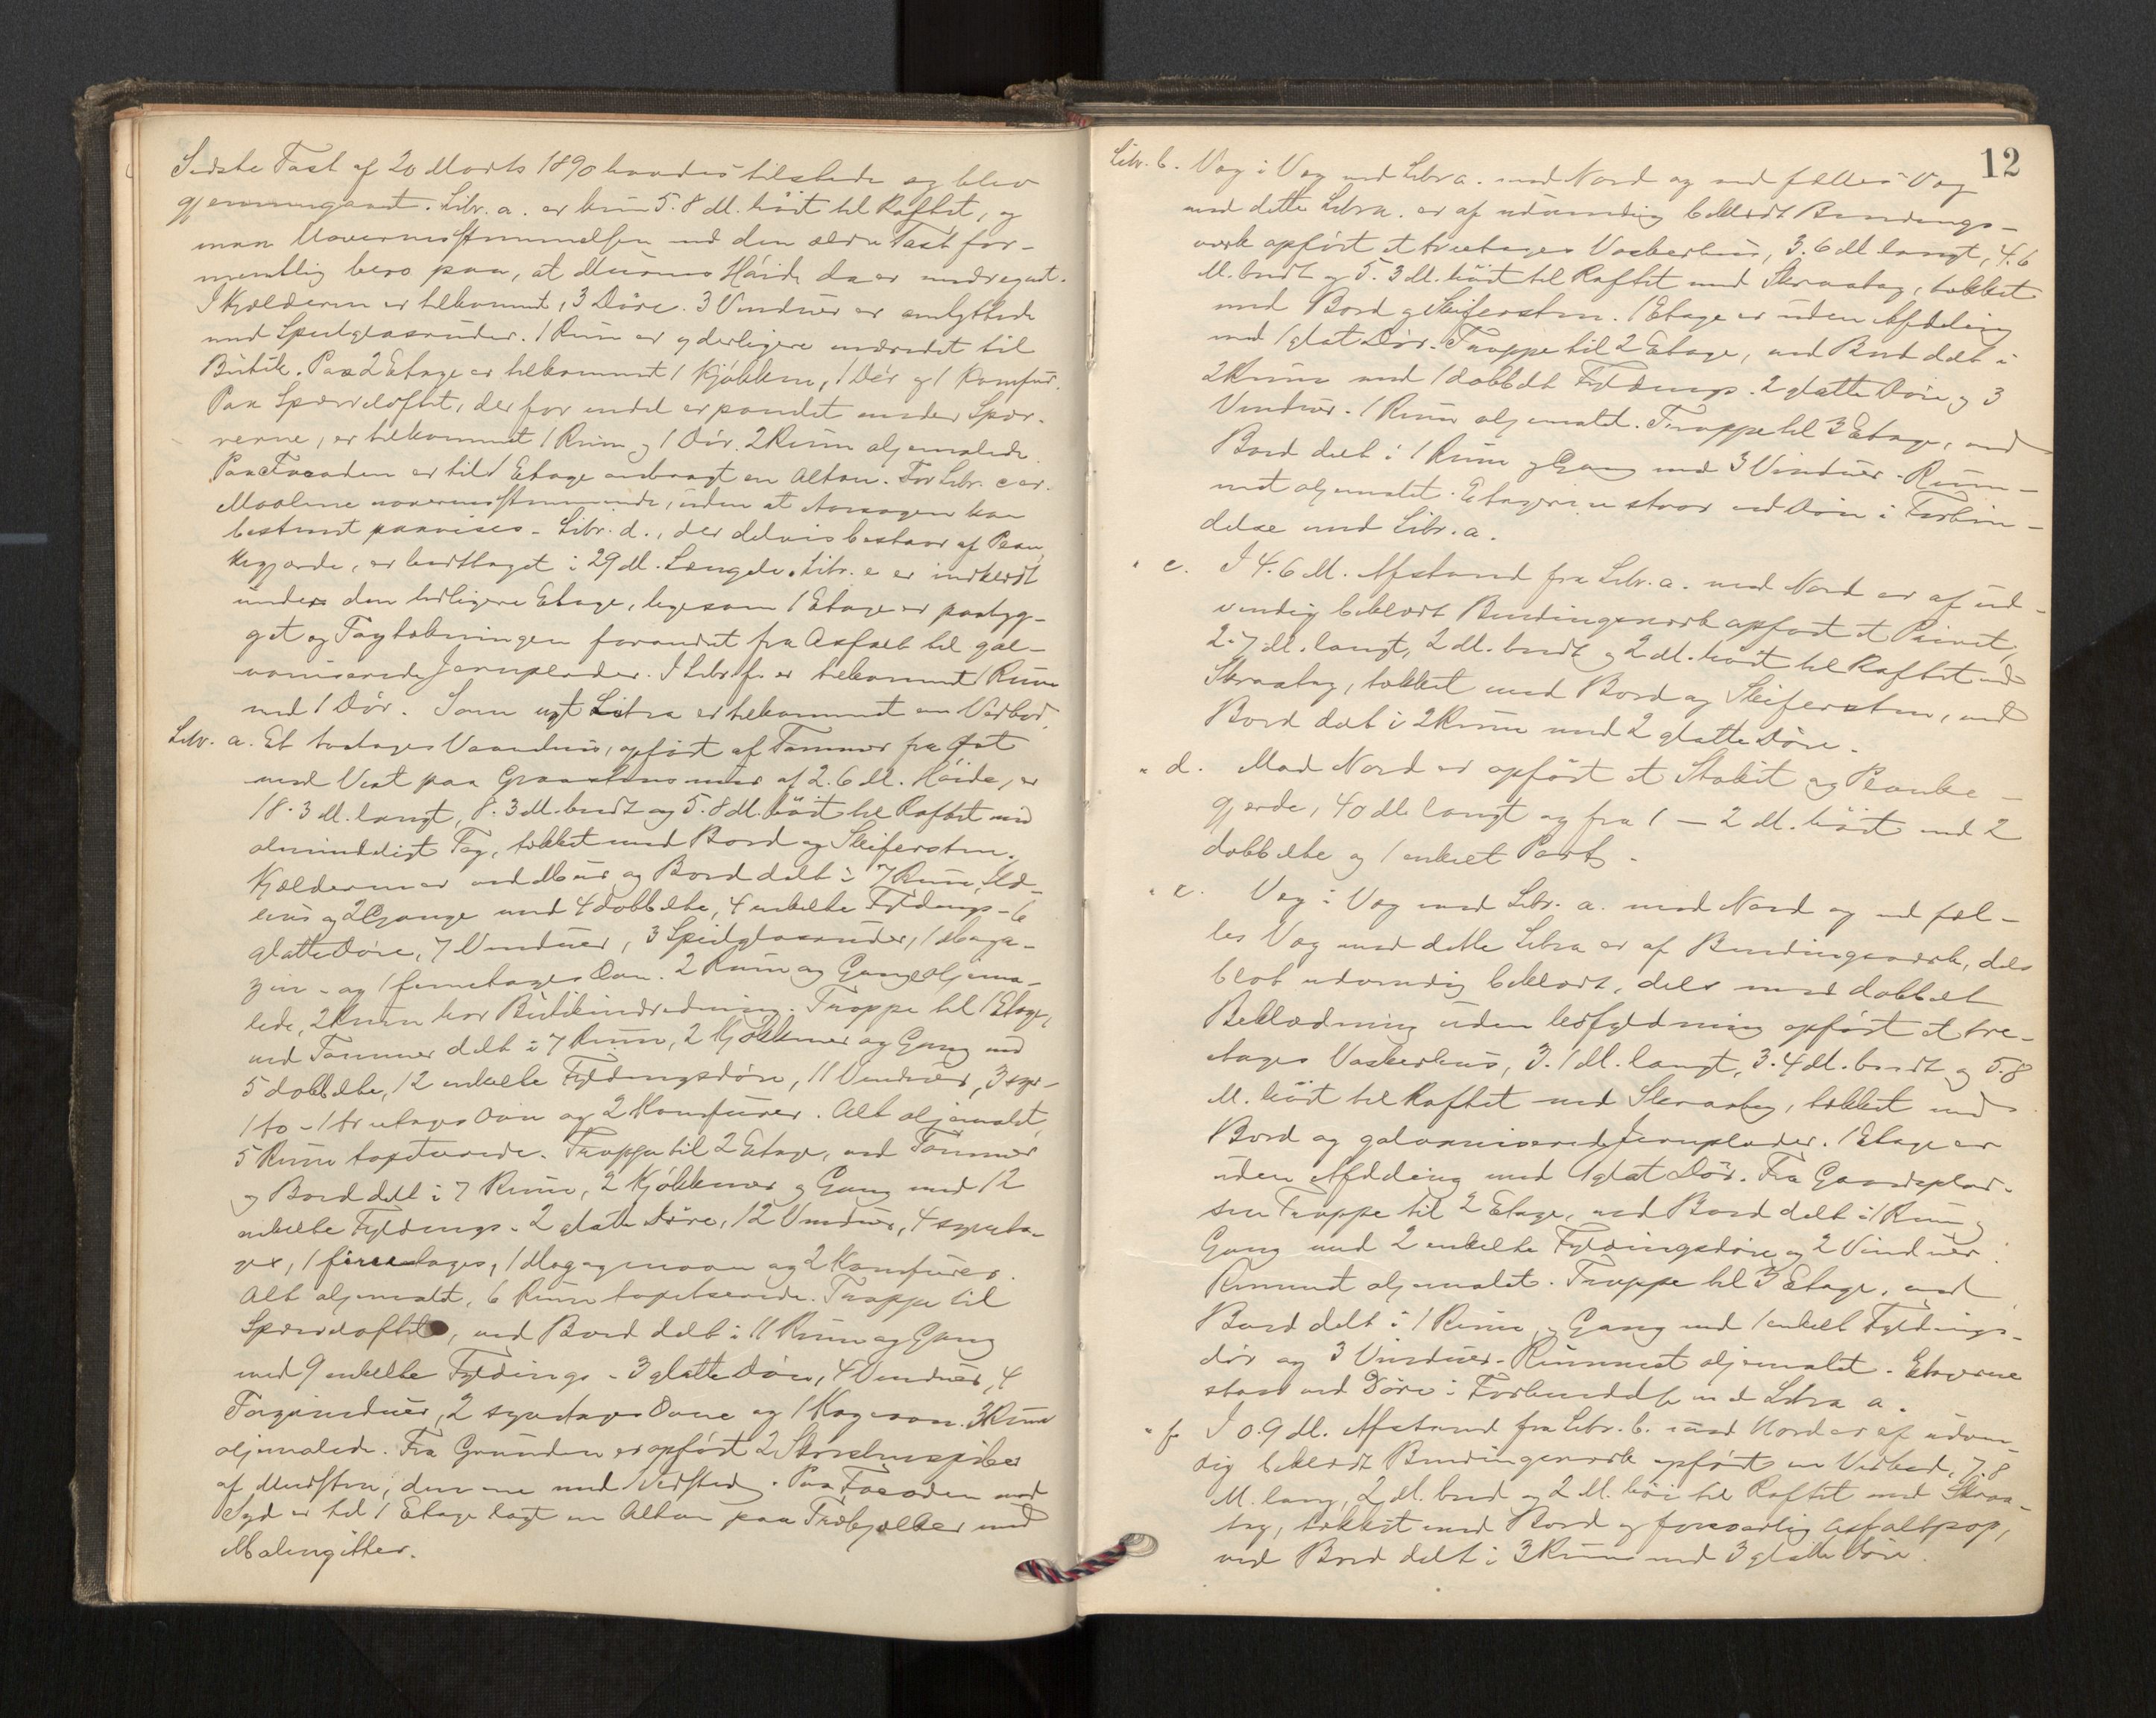 Sidste Taxt af 20 Marts 1890 havdes tilstede og blev
gjennemgaaet. Litr. a. er kun 5.8 M. höit til Raftet, og
man Uovernsstemmelsen med den ældre Taxt for-
mentlig bero paa, at Murens Höide da er medregnet.
I Kjælderen er tilkommet, 3 Döre. 3 Vinduer er ombyttede
med Speilglasruder. 1 Rum er yderligere indredet til
Butik. Paa 2 Etage er tilkommet 1 Kjökken, 1 Dör og 1 Komfur.
Paa Sperreloftet, der for endel er panelet under Sper-
rerne, er tilkommet 1 Rum og 1 Dör. 2 Rum oljemalede.
Paa Facaden er til 1 Etage anbragt en Altan. For Litr. c er
Maalene uoverensstemmende, uden at Aarsagen kan
bestemt paavises. Litr. d., der delvis bestaar af Plan-
kegjærde, er borttaget i 29 M. Længde. Litr. e er indklædt
under den tidligere Etage, ligesom 1 Etage er paabyg-
get og Tagtækningen forandret fra Asfalt til gal-
vaniserede Jernplader. I Litr. f. er tilkommet 1 Rum
med 1 Dör. Som nyt Litra er tilkommet en Vedbod.
Litr. a. Et toetages Vaaningshus, opfört af Tömmer fra Öst
mod Vest paa Graastensmur af 2.6 M. Höide, er
18.3 M. langt, 8.3 M. bredt og 5.8 M. höit til Raftet med
almindeligt Tag, tækket med Bord og Skifersten.
Kjælderen er ved Mur og Bord delt i 7 Rum, Ild-
hus og 2 Gange med 4 dobbelte, 4 enkelte Fyldings- 6
glatte Döre, 7 Vinduer, 3 Speilglasruder, 1 Maga-
zin- og 1 femetages Ovn. 2 Rum og Gange oljema-
lede, 2 Rum har Butikindredning. Trappe til 1 Etage,
ved Tömmer delt i 7 Rum, 2 Kjökkener og Gang med
5 dobbelte, 12 enkelte Fyldingsdöre, 11 Vinduer, 3 syv-
1 to- 1 treetages Ovn og 2 Komfurer. Alt oljemalet,
5 Rum tapetserede. Trappe til 2 Etage, ved Tömmer
og Bord delt i 7 Rum, 2 Kjökkener og Gang med 12
enkelte Fyldings- 2 glatte Döre, 12 Vinduer, 4 syveta-
ges, 1 fireetages, 1 Magazinovn og 2 Komfurer.
Alt oljemalt, 6 Rum tapetserede. Trappe til
Sperreloftet, ved Bord delt i 11 Rum og Gang
med 9 enkelte Fyldings- 3 glatte Döre, 4 Vinduer, 4
Tagvinduer, 2 syvetages Ovne og 1 Kogeovn. 3 Rum
oljemalede. Fra Grunden er opfört 2 Skorstenspiber
af Mursten, den ene med Ildsted. Paa Facaden mod
Syd er til 1 Etage lagt en Altan paa Træbjælker med
Malengitter.
12
Litr. b. Væg i Væg med Litr a. mod Nord og med fælles Væg
med dette Litra. er af udvendig beklædt Bindings-
værk opfört et treetages Vaskerhus, 3.6 M. langt, 4.6
M. bredt og 5.3 M. höit til Raftet med Skraatag, tækket
med Bord og Skifersten. 1 Etage er uden Afdeling
med 1 glat Dör. Trappe til 2 Etage, ved Bord delt i
2 Rum med 1 dobbelt Fyldings- 2 glatte Döre og 3
Vinduer. 1 Rum oljemalet. Trappe til 3 Etage, ved
Bord delt i 1 Rum og Gang med 3 Vinduer. Rum-
met oljemalet. Etagerne staar ved Döre i Forbin-
delse med Litr. a.
" c. I 4.6 M. Afstand fra Litr. a. mod Nord er af ud-
vendig beklædt Bindingsværk opfört et Privet,
2.7 M. langt, 2 M. bredt og 2 M. höit til Raftet med
Skraatag, tækket med Bord og Skifersten, ved
Bord delt i 2 Rum med 2 glatte Döre.
" d. Mod Nord er opfört et Stakit og Planke-
gjerde, 40 M. langt og fra 1 — 2 M. höit med 2
dobbelte og 1 enkelt Port.
" e. Væg i Væg med Litr. a. mod Nord og ved fæl-
les Væg med dette Litra er af Bindingsværk, dels
blot udvendig beklædt, dels med dobbelt
Beklædning uden Isofyldning opfört et tre-
etages Vaskerhus, 3.1 M. langt, 3.4 M. bredt og 5.8
M. höit til Raftet med Skraatag, tækket med
Bord og galvaniserede Jernplader. 1 Etage er
uden Afdeling med 1 glat Dör. Fra Gaardsplad-
sen Trappe til 2 Etage, ved Bord delt i 1 Rum og
Gang med 2 enkelte Fyldingsdöre og 2 Vinduer.
Rummet oljemalet. Trappe til 3 Etage, ved
Bord delt i 1 Rum og Gang med 1 enkelt Fyldings-
dör og 3 Vinduer. Rummet oljemalet. Etagerne
staar ved Döre i Forbindelse med Litra a.
" f. I 0.9 M. Afstand fra Litr. b. mod Nord er af udven-
dig beklædt Bindingsværk opfört en Vedbod, 7.8
M. lang, 2 M. bred og 2 M. höi til Raftet med Skraa-
tag, tækket med Bord og forsvarlig Asfaltpap,
ved Bord delt i 3 Rum med 3 glatte Döre.